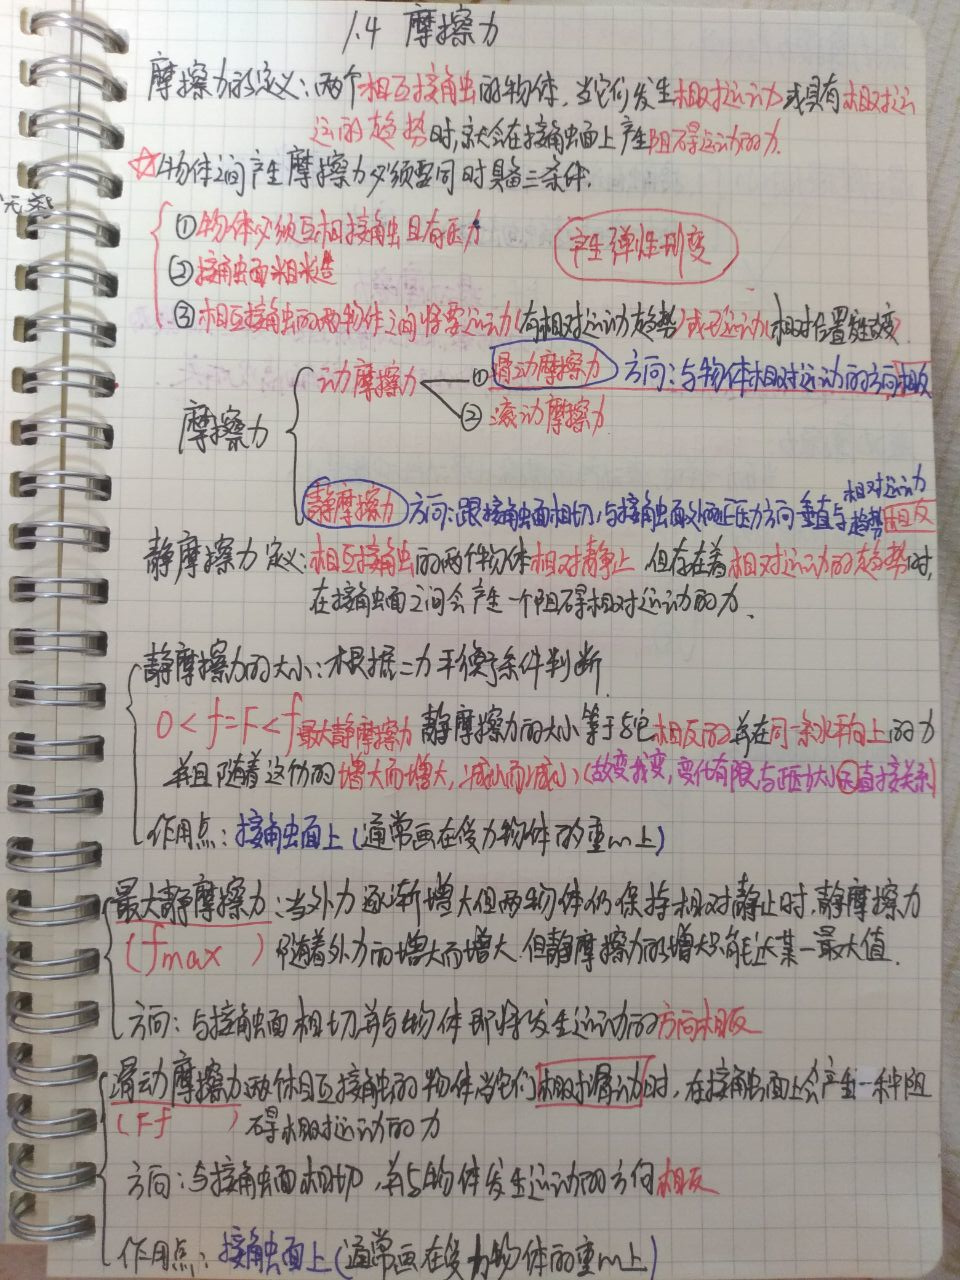 1.4 摩擦力
摩擦力的定义:两个相互接触的物体,当它们发生相对运动或具有相对运
运的趋势时,就会在接触面上产生阻碍运动的力.
☆物体之间产生摩擦力必须要同时具备三条件:
①物体必须互相接触且有压力
产生弹性形变
②接触面粗糙
③相互接触的两物体之间将要运动(有相对运动趋势)或已运动(相对位置发生改变)
动摩擦力 ①滑动摩擦力 方向:与物体相对运动的方向相反
摩擦力 ②滚动摩擦力
静摩擦力 方向:跟接触面相切,与接触面处的正压力方向垂直与相对运动趋势相反
静摩擦力 定义:相互接触的两个物体相对静止,但存在着相对运动的趋势时,
在接触面之间会产生一个阻碍相对运动的力.
静摩擦力的大小:根据二力平衡条件判断
0<f=F<f最大静摩擦力 静摩擦力的大小等于与它相反的并在同一条水平向上的力
并且随着这份的增大而增大,减小而减小)(故变我变,变化有限,与压力大小无直接关系)
作用点:接触面上(通常画在受力物体的重心上)
最大静摩擦力:当外力逐渐增大但两物体仍保持相对静止时,静摩擦力
(fmax) 随着外力的增大而增大.但静摩擦力的增大只能达某一最大值.
方向:与接触面相切并与物体即将发生运动的方向相反
滑动摩擦力 两个相互接触的物体当它们相对滑动时,在接触面上会产生一种阻
(Ff) 碍相对运动的力
方向:与接触面相切,并与物体发生运动的方向相反
作用点:接触面上(通常画在受力物体的重心上)